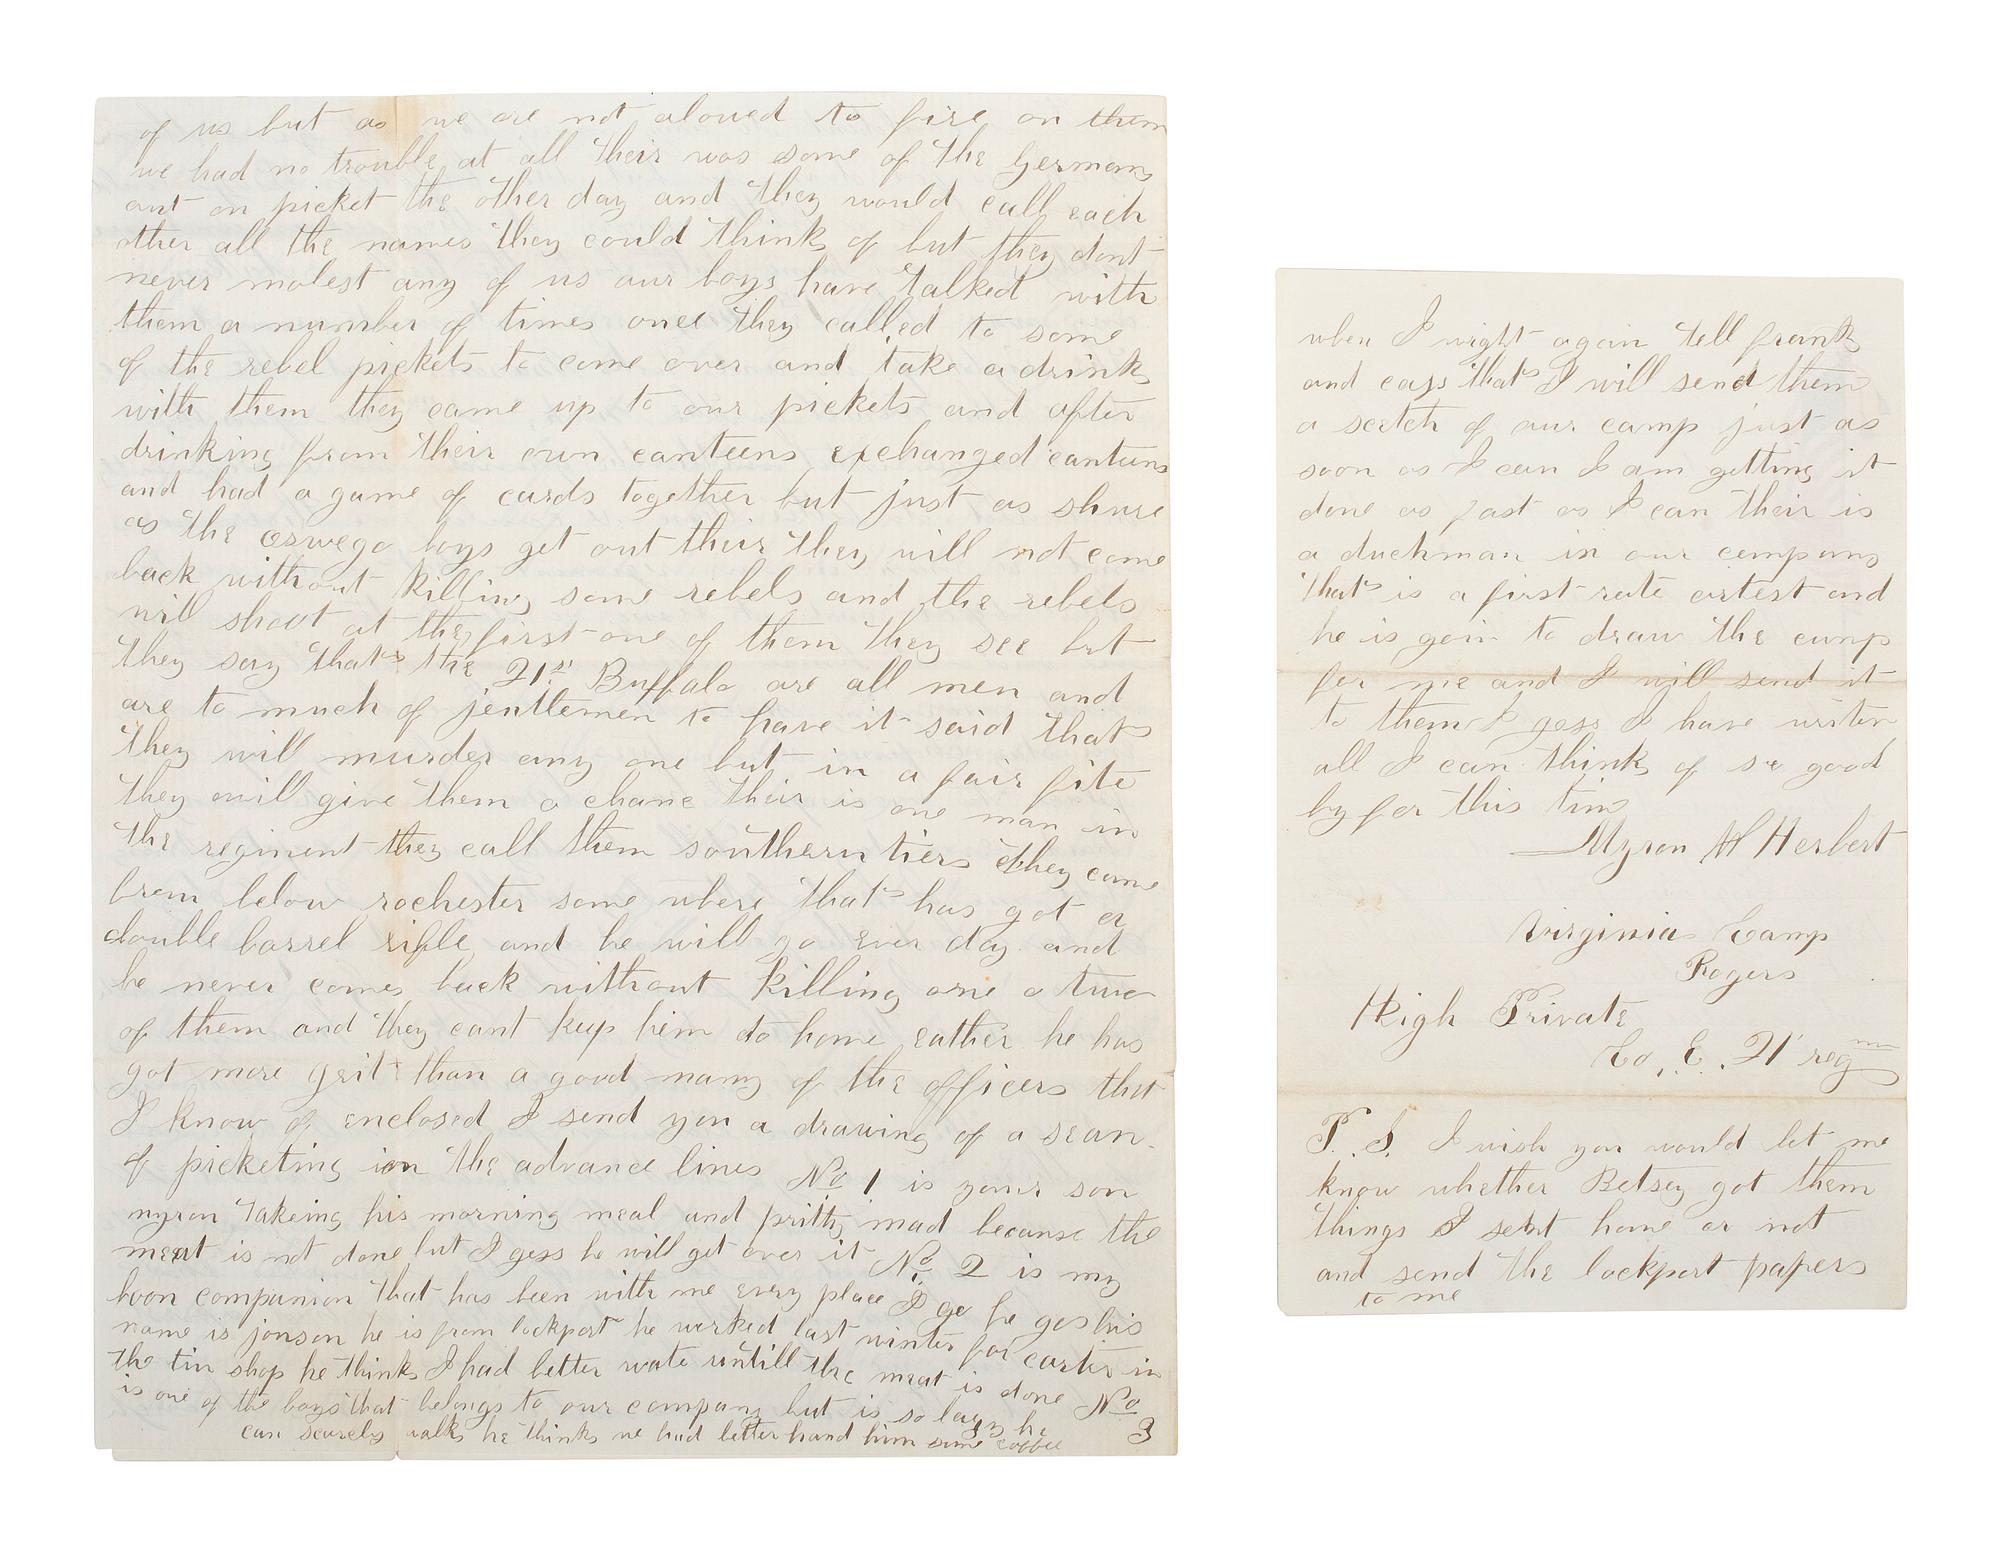 of us but as we are not aloued to fire on them
we had no trouble at all their was some of the Germans
out on picket the other day and they would call each
other all the names they could think of but they dont
never molest any of us our boys have talked with
them a number of times once they called to some
of the rebel pickets to come over and take a drink
with them they came up to our pickets and after
drinking from their own canteens exchanged canteens
and had a game of cards together but just as shure
as the oswego boys get out their they will not come
back without killing some rebels and the rebels
wil shoot at the first one of them they see but
they say that the 21st Buffalo are all men and
are to much of jentlemen to have it said that
they will murder any one but in a fair fite
they will give them a chanc their is one man in
the regiment they call them southern tiers they came
from below rochester some where that has got a
double barrel rifle and he will go ever day and
he never comes back without killing one o two
of them and they cant keep him to home eather he has
got more grit than a good many of the officers that
I know of enclosed I send you a drawing of a sean
of picketing on the advance lines No 1 is your son
myron takeing his morning meal and pritty mad because the
meat is not done but I gess he will get over it No. 2 is my
boon companion that has been with me every place I go he goes his
name is jonson he is from lockport he worked last winter for carter in
the tin shop he thinks I had better wate untill the meat is done No 3
is one of the boys that belongs to our company but is so lazy he
can scarcely walk he thinks we had better hand him some coffee
when I wright again tell frank
and cass that I will send them
a scetch of our camp just as
soon as I can I am getting it
done as fast as I can their is
a duchman in our company
that is a first rate artest and
he is goin to draw the camp
for me and I will send it
to them I gess I have writen
all I can think of so good
by for this time
Myron H Herbert
Virginia Camp
Rogers
High Private
Co. E. 21 reg
P. S. I wish you would let me
know whether Betsey got them
things I sent home or not
and send the lockport papers
to me